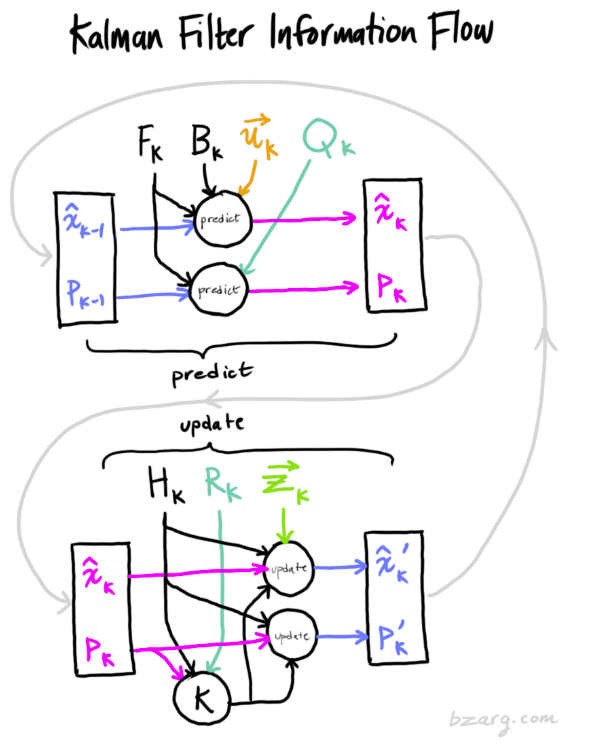 Kalman Filter Information Flow
Fₖ Bₖ u⃗ₖ Qₖ
x̂ₖ₋₁ predict x̂ₖ
Pₖ₋₁ predict Pₖ
predict
update
Hₖ Rₖ z⃗ₖ
x̂ₖ update x̂ₖ′
Pₖ update Pₖ′
K
bzarg.com